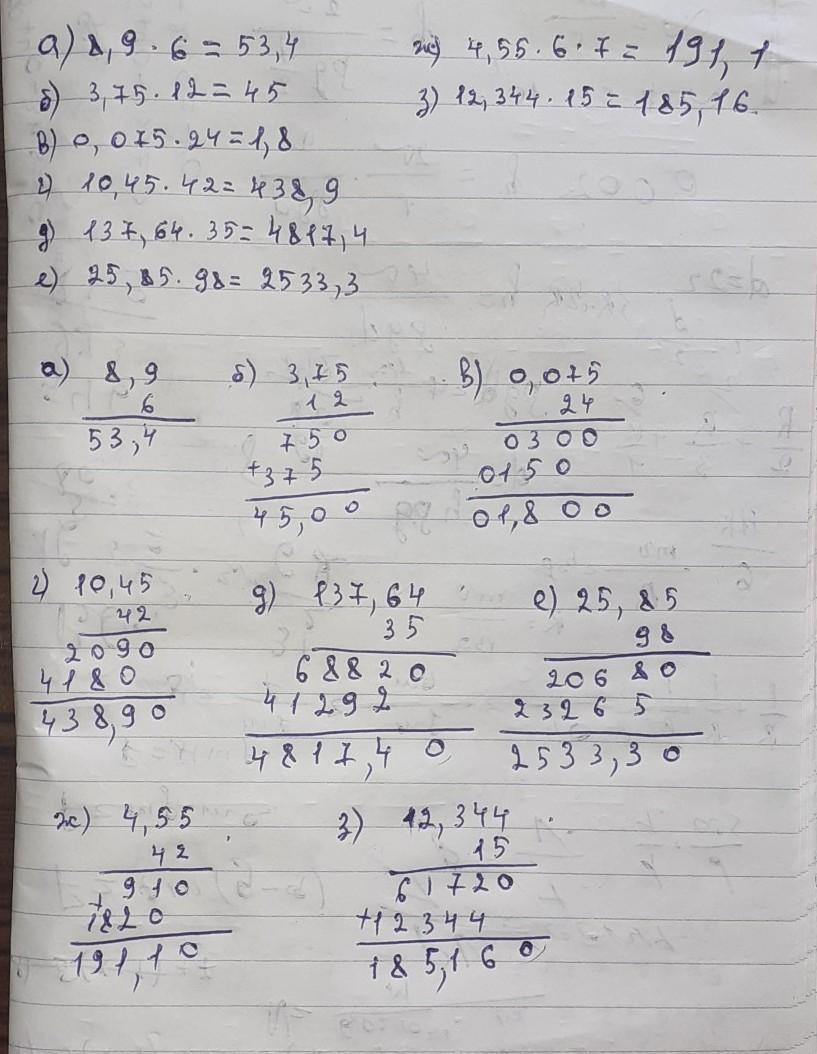 а) 8,9 · 6 = 53,4
б) 3,75 · 12 = 45
в) 0,075 · 24 = 1,8
г) 10,45 · 42 = 438,9
д) 137,64 · 35 = 4817,4
е) 25,85 · 98 = 2533,3
ж) 4,55 · 6 · 7 = 191,1
з) 12,344 · 15 = 185,16
а) 8,9
6
53,4
б) 3,75
12
750
+375
45,00
в) 0,075
24
0300
0150
01,800
г) 10,45
42
2090
4180
438,90
д) 137,64
35
68820
41292
4817,40
е) 25,85
98
20680
23265
2533,30
ж) 4,55
42
910
+1820
191,10
з) 12,344
15
61720
+12344
185,160